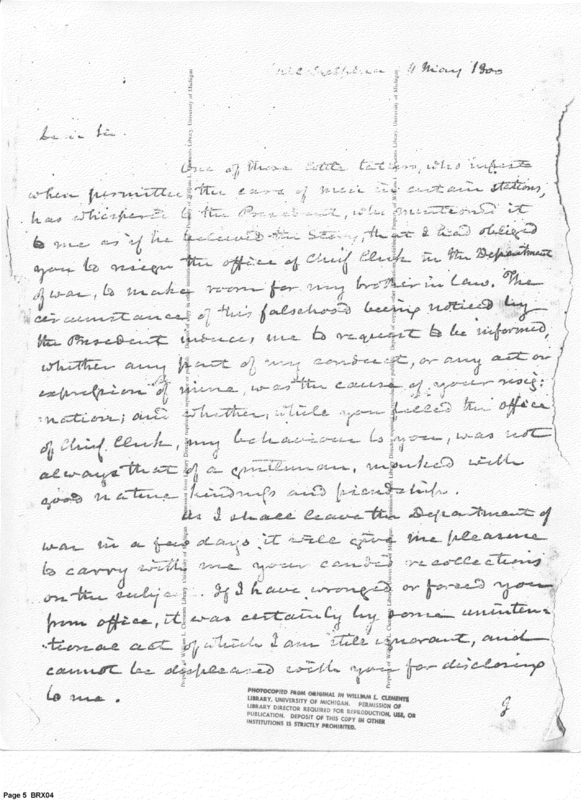 Philadelphia 9 May 1800
Dear Sir.
One of those little tatlers, who infest
when permitted the ears of men in certain stations,
has whispered to the President, who mentioned it
to me as if he believed the Story, that I had obliged
you to resign the office of Chief Clerk in the Department
of war, to make room for my brother in law. The
circumstance of this falsehood being noticed by
the President induces me to request to be informed,
whether any part of my conduct, or any act or
expression of mine, was the cause of your resig:
nation; and whether, while you filled the office
of Chief Clerk, my behaviour to you, was not
always that of a gentleman, marked with
good nature kindness and friendship.
As I shall leave the Department of
war in a few days it will give me pleasure
to carry with me your candid recollections
on the subje . If I have wronged or forced you
from office, it was certainly by some uninten-
tional act of which I am still ignorant, and
cannot be displeased with you for disclosing
to me.
PHOTOCOPIED FROM ORIGINAL IN WILLIAM L. CLEMENTS
LIBRARY, UNIVERSITY OF MICHIGAN. PERMISSION OF
LIBRARY DIRECTOR REQUIRED FOR REPRODUCTION, USE, OR
PUBLICATION. DEPOSIT OF THIS COPY IN OTHER
INSTITUTIONS IS STRICTLY PROHIBITED.
Page 5 BRX04